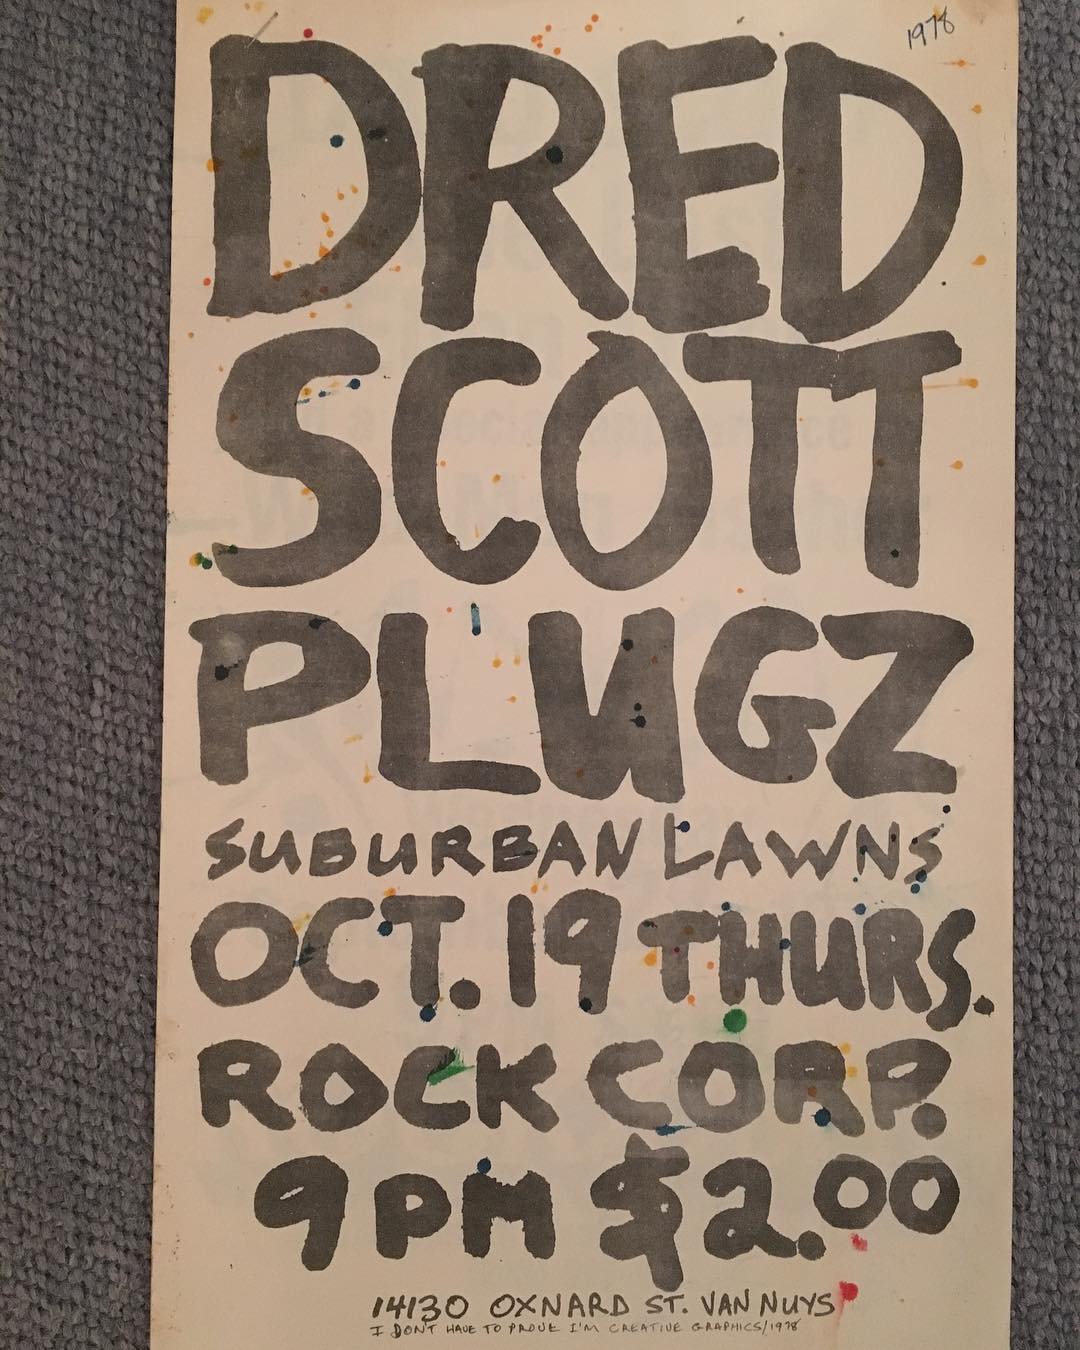 1978
DRED
SCOTT
PLUGZ
SUBURBAN LAWNS
OCT. 19 THURS.
ROCK CORP.
9 PM $2.00
14130 OXNARD ST. VAN NUYS
I DON'T HAVE TO PROVE I'M CREATIVE GRAPHICS/1978